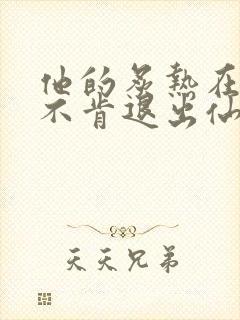 他的炙热在
不肯退出仙
天天兄弟